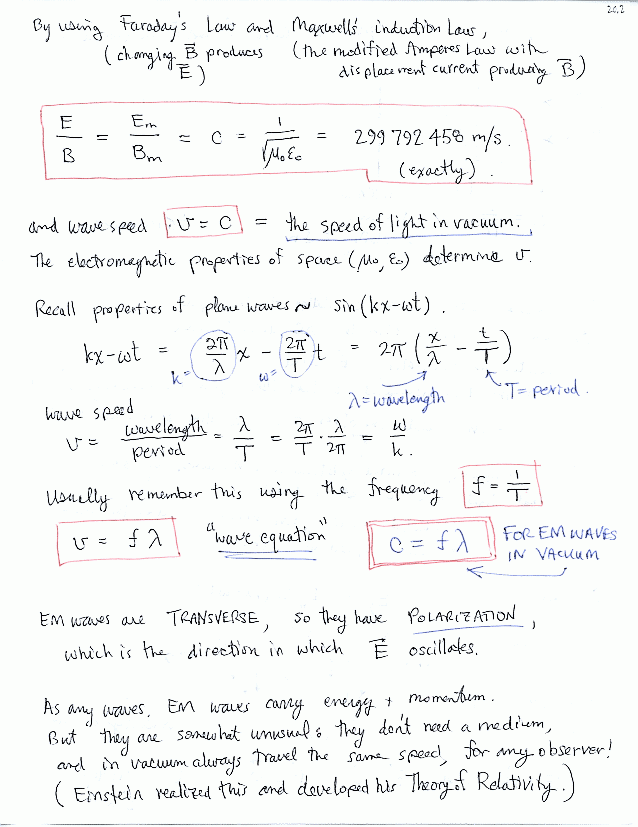 26.2
By using Faraday's Law and Maxwell's induction Law,
(changing B⃗ produces E⃗) (the modified Amperes Law with displacement current producing B⃗)
E/B = Em/Bm = c = 1/√μ₀ε₀ = 299 792 458 m/s.
(exactly).
and wave speed v = c = the speed of light in vacuum.
The electromagnetic properties of space (μ₀, ε₀) determine v.
Recall properties of plane waves ~ sin(kx-ωt).
kx-ωt = 2π/λ x - 2π/T t = 2π (x/λ - t/T)
k= ω= λ=wavelength T=period.
wave speed
v = wavelength/period = λ/T = 2π/T · λ/2π = ω/k.
Usually remember this using the frequency f = 1/T
v = fλ "wave equation" c = fλ FOR EM WAVES
IN VACUUM
EM waves are TRANSVERSE, so they have POLARIZATION,
which is the direction in which E⃗ oscillates.
As any waves, EM waves carry energy + momentum.
But they are somewhat unusual: they don't need a medium,
and in vacuum always travel the same speed, for any observer!
(Einstein realized this and developed his Theory of Relativity.)